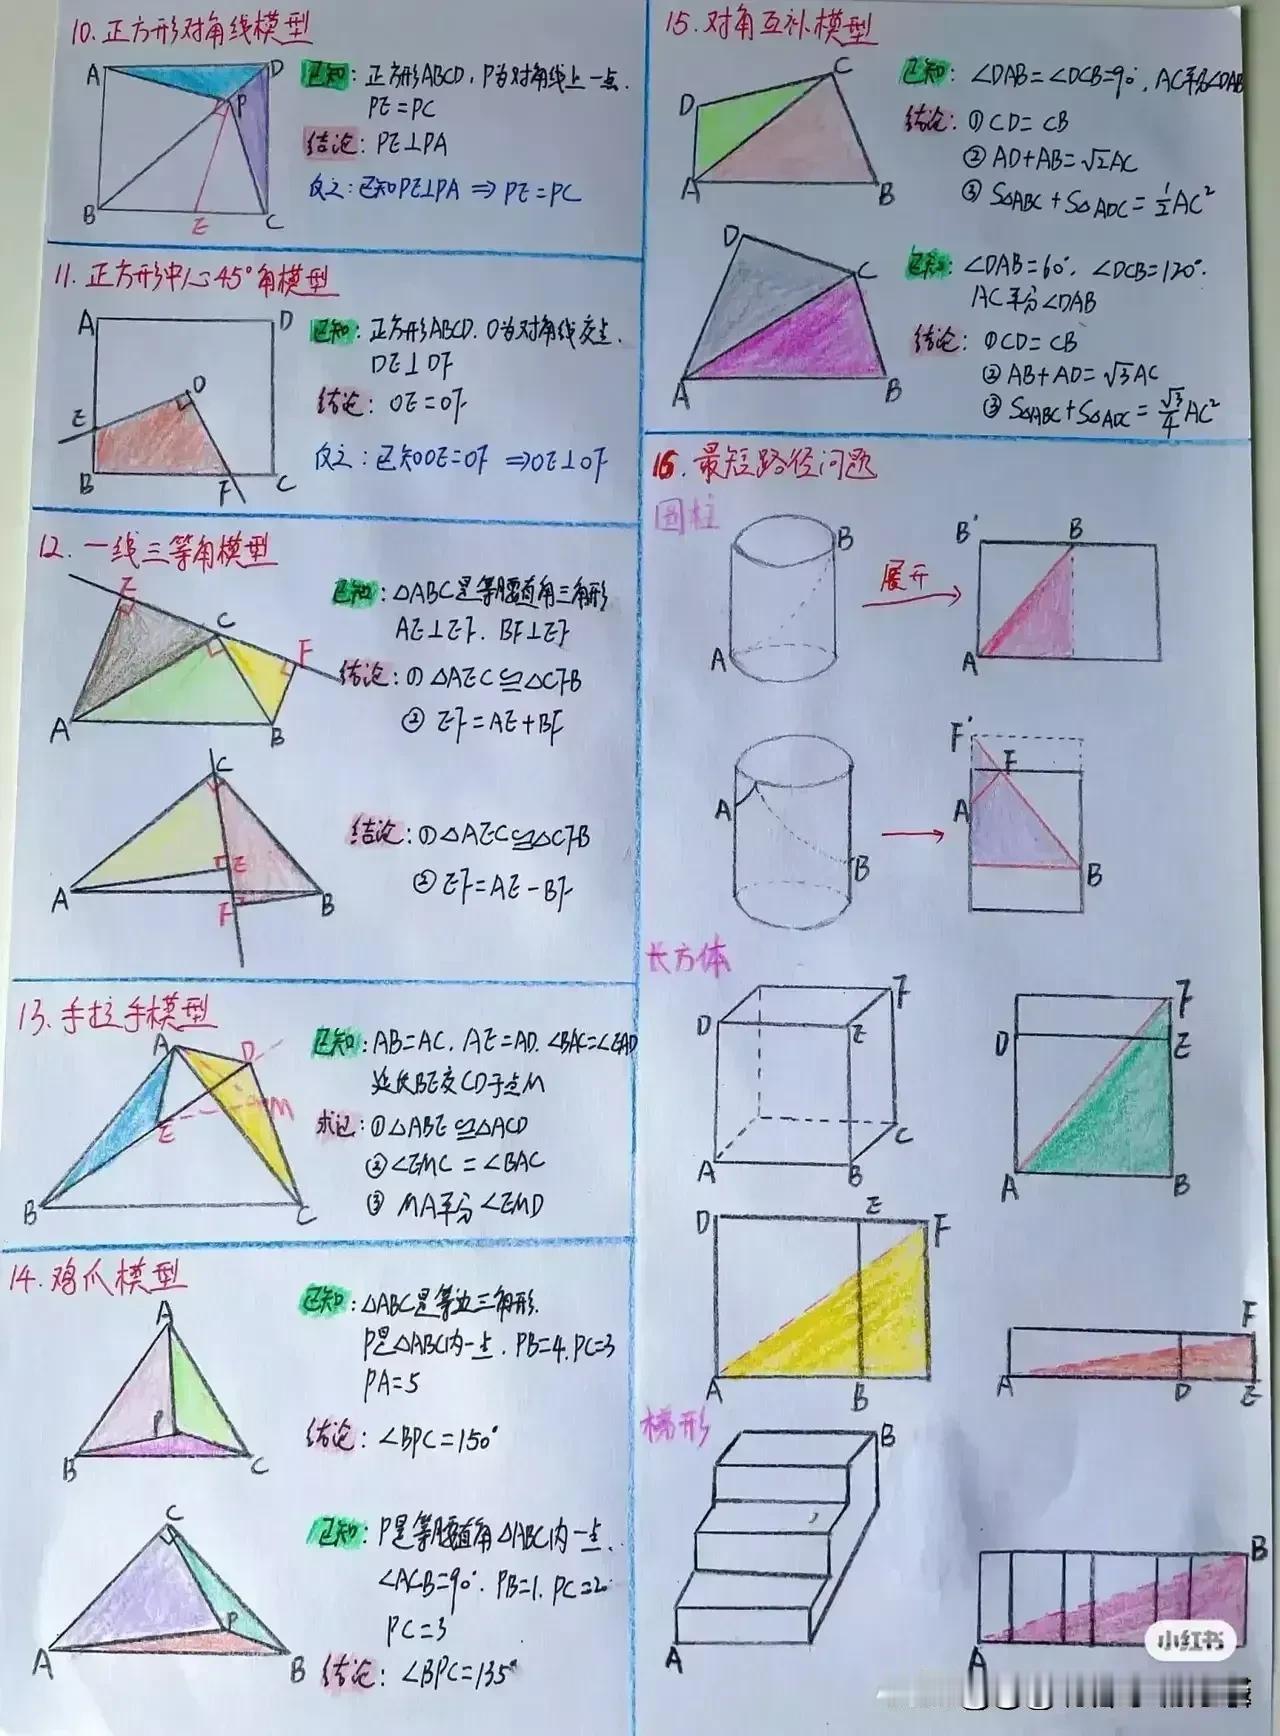 10. 正方形对角线模型
A D P B E C
已知: 正方形ABCD, P为对角线上一点.
PE=PC
结论: PE⊥PA
反之: 已知PE⊥PA ⇒ PE=PC
11. 正方形中心45°角模型
A D O E B F C
已知: 正方形ABCD. O为对角线交点.
OE⊥OF
结论: OE=OF
反之: 已知OE=OF ⇒OE⊥OF
12. 一线三等角模型
E C F A B
已知: △ABC是等腰直角三角形
AE⊥EF. BF⊥EF
结论: ① △AEC≌△CFB
② EF=AE+BF
C E A F B
结论: ①△AEC≌△CFB
② EF=AE-BF
13. 手拉手模型
A D M E B C
已知: AB=AC. AE=AD. ∠BAC=∠EAD
延长BE交CD于点M
求证: ①△ABE≌△ACD
②∠EMC=∠BAC
③ MA平分∠EMD
14. 鸡爪模型
A P B C
已知: △ABC是等边三角形.
P是△ABC内一点. PB=4. PC=3
PA=5
结论: ∠BPC=150°
C P A B
已知: P是等腰直角△ABC内一点.
∠ACB=90°. PB=1. PC=2
PC=3
结论: ∠BPC=135°
15. 对角互补模型
C D A B
已知: ∠DAB=∠DCB=90°, AC平分∠DAB
结论: ①CD=CB
② AD+AB=√2AC
③ S△ABC+S△ADC=1/2AC²
D C A B
已知: ∠DAB=60°. ∠DCB=120°.
AC平分∠DAB
结论: ①CD=CB
② AB+AD=√3AC
③ S△ABC+S△ADC=√3/4AC²
16. 最短路径问题
圆柱
B A
展开
B' B A
A B
F' F A B
长方体
D F E C A B
F D E A B
D E F A B
F A D E
梯形
B A
B A
小红书